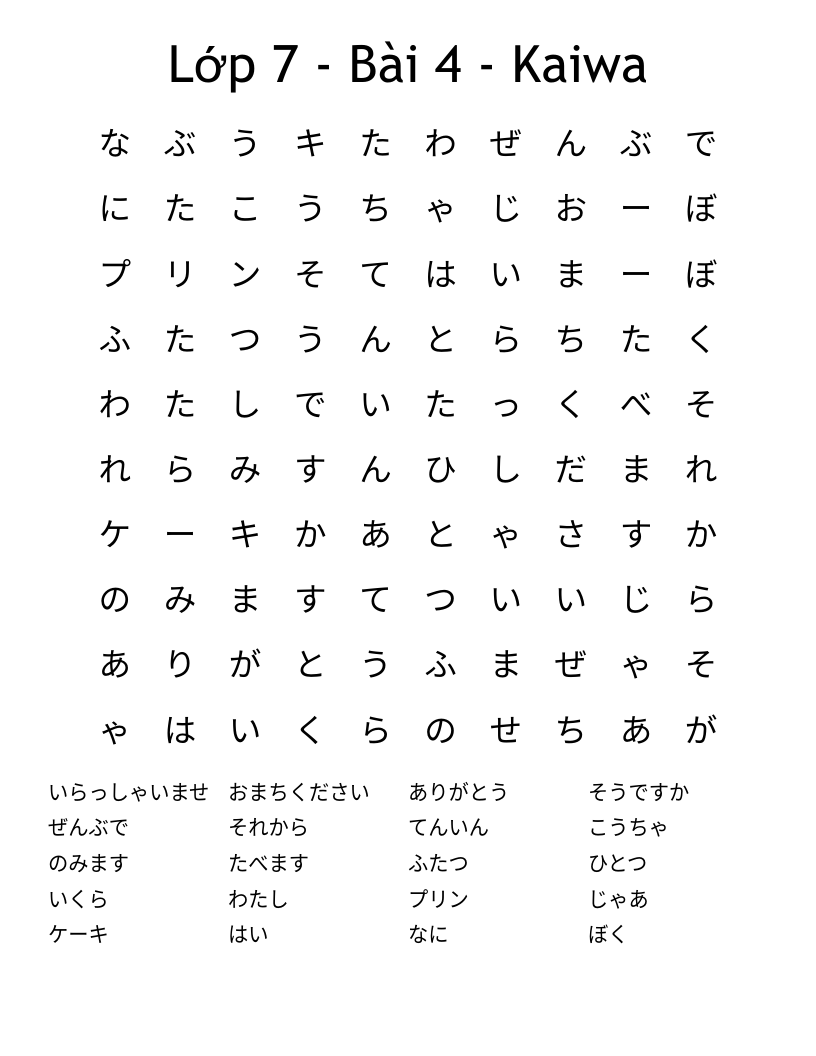 Lớp 7 - Bài 4 - Kaiwa
な ぶ う キ た わ ぜ ん ぶ で
に た こ う ち ゃ じ お ー ぼ
プ リ ン そ て は い ま ー ぼ
ふ た つ う ん と ら ち た く
わ た し で い た っ く べ そ
れ ら み す ん ひ し だ ま れ
ケ ー キ か あ と ゃ さ す か
の み ま す て つ い い じ ら
あ り が と う ふ ま ぜ ゃ そ
ゃ は い く ら の せ ち あ が
いらっしゃいませ おまちください ありがとう そうですか
ぜんぶで それから てんいん こうちゃ
のみます たべます ふたつ ひとつ
いくら わたし プリン じゃあ
ケーキ はい なに ぼく